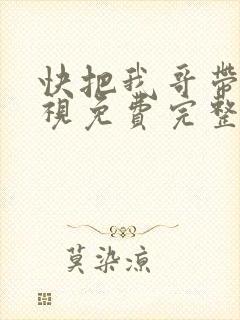 快把我哥带
視免費完整
莫染凉